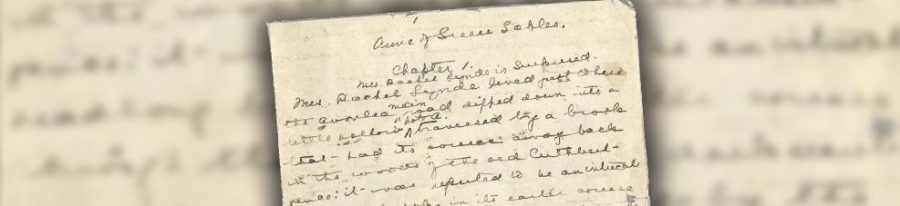 Anne of Green Gables.
Chapter 1.
Mrs. Rachel Lynde is Surprised.
Mrs. Rachel Lynde lived just where
main
the Avonlea road dipped down into a
little hollow traversed by a brook
that had its source away back
in the woods of the old Cuthbert
place: it was reputed to be an
in its earlier course